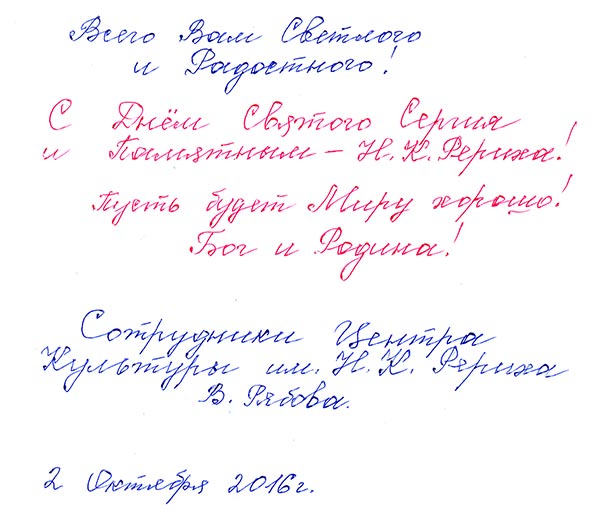 Всего Вам Светлого
и Радостного!
С Днём Святого Сергия
и Памятным – Н. К. Рериха!
Пусть будет Миру хорошо!
Бог и Родина!
Сотрудники Центра
Культуры им. Н. К. Рериха
В. Рябова.
2 Октября 2016 г.